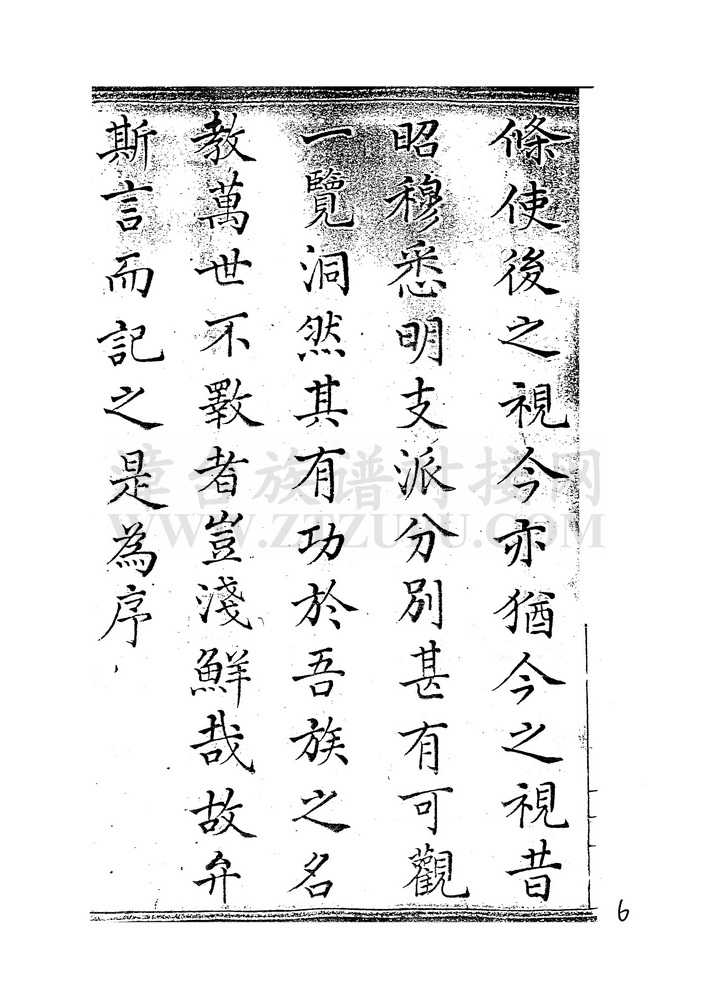 條使後之視今亦猶今之視昔
昭穆悉明支派分別甚有可觀
一覽洞然其有功於吾族之名
教萬世不斁者豈淺鮮哉故弁
斯言而記之是為序
族谱对接网
WWW.ZUZUPU.COM
6